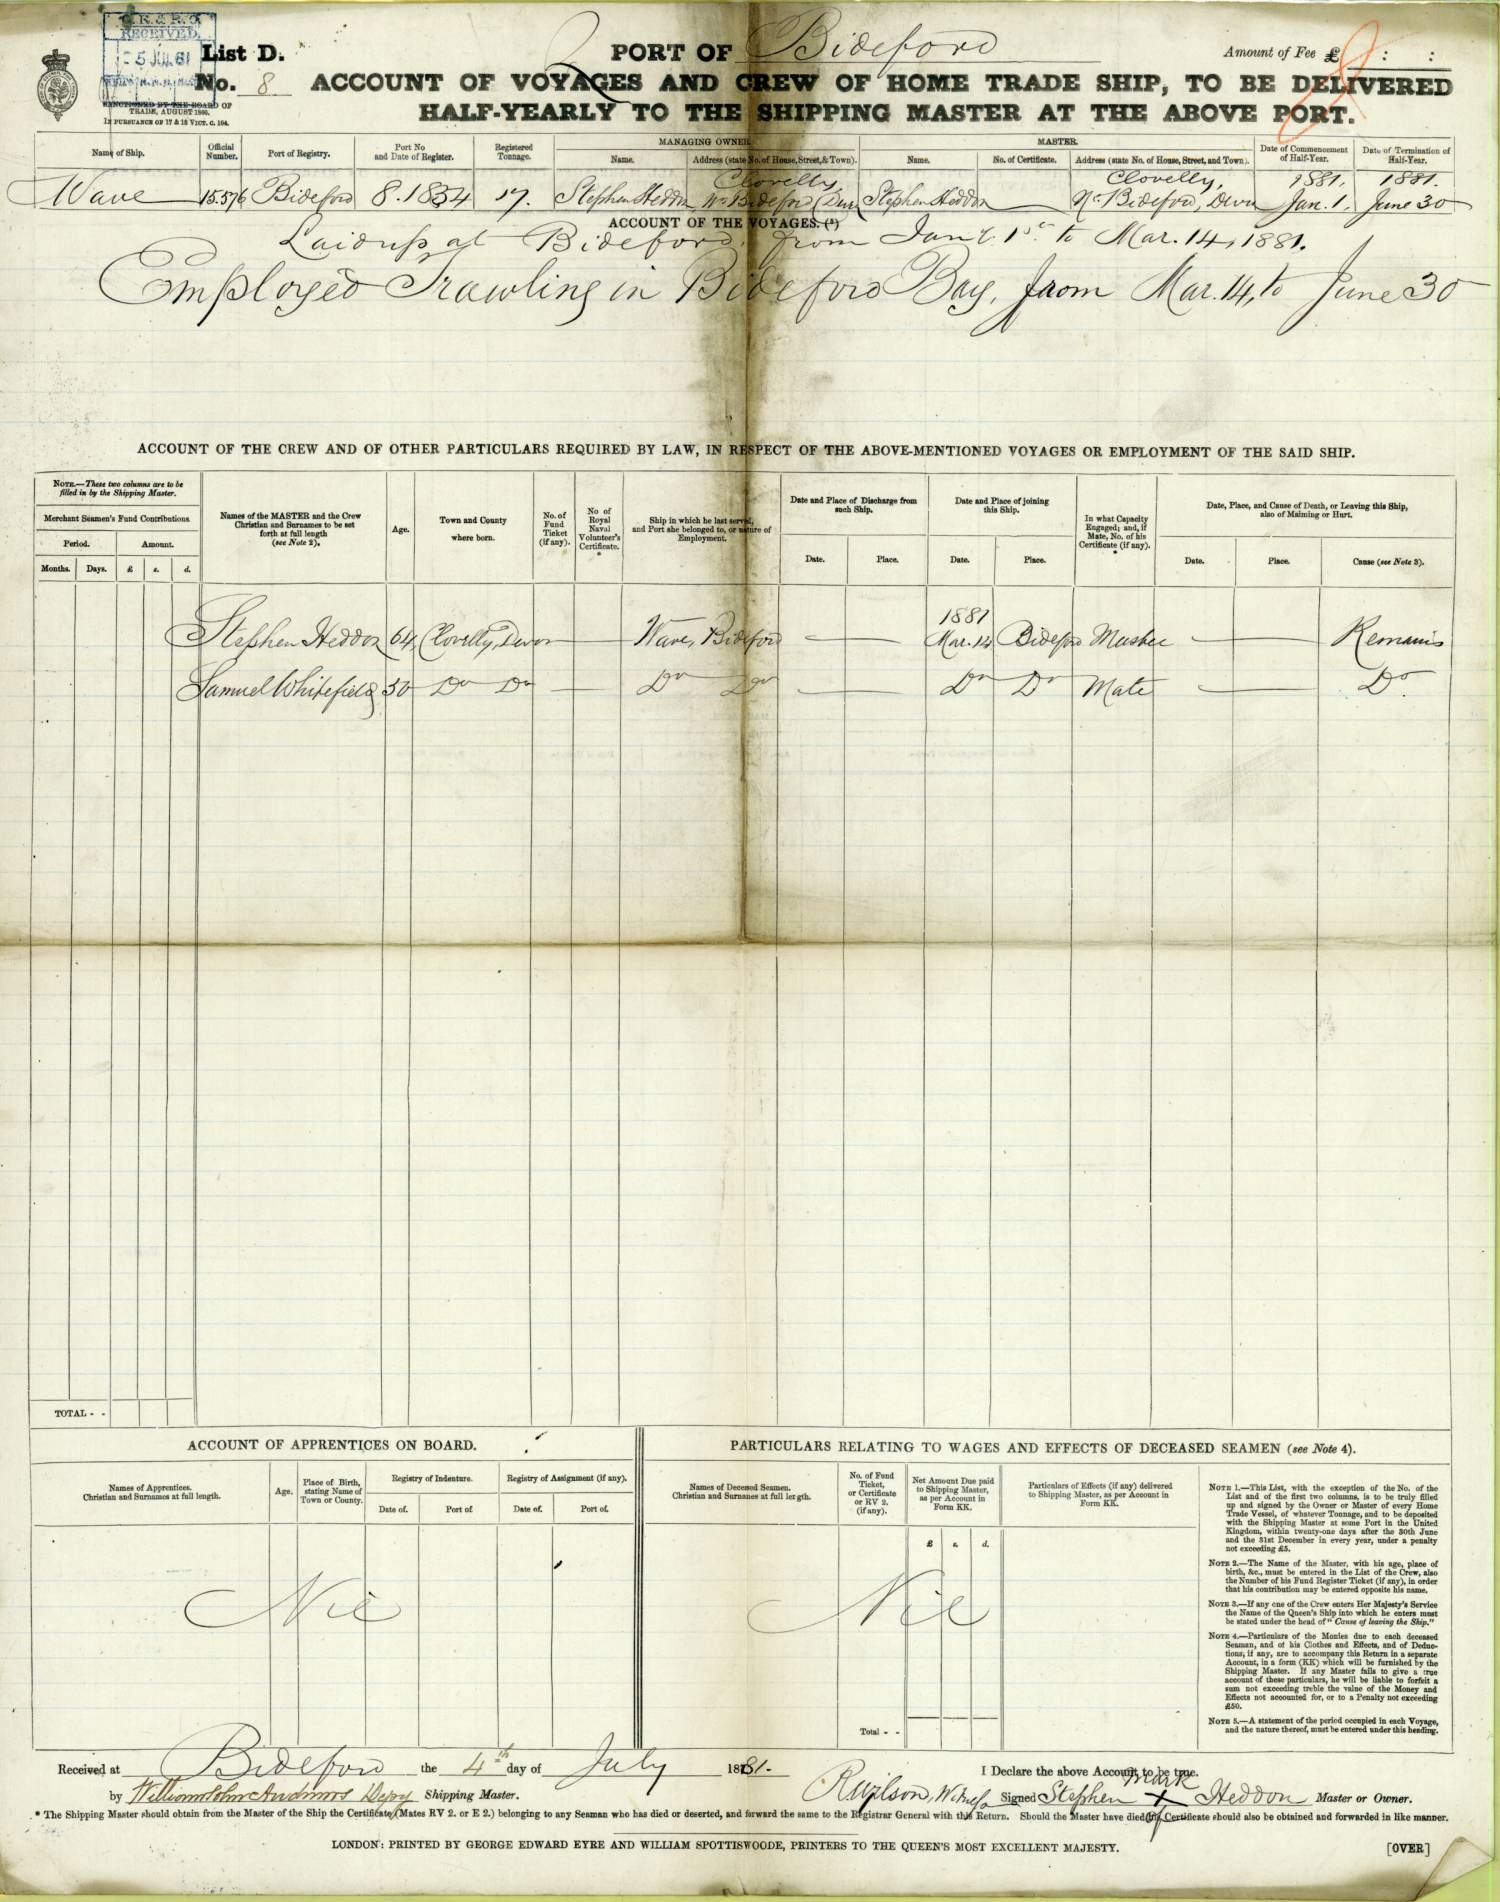 RECEIVED
5 JUL 81
List D.
No. 8
SANCTIONED BY THE BOARD OF
TRADE, AUGUST 1860.
IN PURSUANCE OF 17 & 18 VICT. C. 104.
PORT OF Bideford
Amount of Fee £ : :
ACCOUNT OF VOYAGES AND CREW OF HOME TRADE SHIP, TO BE DELIVERED
HALF-YEARLY TO THE SHIPPING MASTER AT THE ABOVE PORT.
Name of Ship. Official Number. Port of Registry. Port No and Date of Register. Registered Tonnage. MANAGING OWNER. Name. Address (state No. of House, Street, & Town). MASTER. Name. No. of Certificate. Address (state No. of House, Street, and Town). Date of Commencement of Half-Year. Date of Termination of Half-Year.
Clovelly, Clovelly, 1881. 1881.
Wave 15.576 Bideford 8.1834 17. Stephen Heddon Nr Bideford (Devon Stephen Heddon Nr. Bideford, Devon Jan. 1. June 30
ACCOUNT OF THE VOYAGES. (¹)
Laid up at Bideford, from Jany. 1st to Mar. 14, 1881.
Employed Trawling in Bideford Bay, from Mar. 14, to June 30
ACCOUNT OF THE CREW AND OF OTHER PARTICULARS REQUIRED BY LAW, IN RESPECT OF THE ABOVE-MENTIONED VOYAGES OR EMPLOYMENT OF THE SAID SHIP.
NOTE.—These two columns are to be
filled in by the Shipping Master.
Merchant Seamen's Fund Contributions.
Period. Amount.
Months. Days. £ s. d.
Names of the MASTER and the Crew
Christian and Surnames to be set
forth at full length
(see Note 2).
Age.
Town and County
where born.
No. of
Fund
Ticket
(if any).
No of
Royal
Naval
Volunteer's
Certificate.
*
Ship in which he last served,
and Port she belonged to, or nature of
Employment.
Date and Place of Discharge from
such Ship.
Date. Place.
Date and Place of joining
this Ship.
Date. Place.
In what Capacity
Engaged; and, if
Mate, No. of his
Certificate (if any).
*
Date, Place, and Cause of Death, or Leaving this Ship,
also of Maiming or Hurt.
Date. Place. Cause (see Note 3).
1881
Stephen Heddon 64 Clovelly, Devon — Wave, Bideford — Mar. 14 Bideford Master — Remains
Samuel Whitefield 50 Do Do — Do Do — Do Do Mate — Do.
TOTAL - -
ACCOUNT OF APPRENTICES ON BOARD.
Names of Apprentices.
Christian and Surnames at full length.
Age.
Place of Birth,
stating Name of
Town or County.
Registry of Indenture.
Date of. Port of
Registry of Assignment (if any).
Date of. Port of.
Nil
PARTICULARS RELATING TO WAGES AND EFFECTS OF DECEASED SEAMEN (see Note 4).
Names of Deceased Seamen.
Christian and Surnames at full length.
No. of Fund
Ticket,
or Certificate
or RV 2.
(if any).
Net Amount Due paid
to Shipping Master,
as per Account in
Form KK.
£ s. d.
Particulars of Effects (if any) delivered
to Shipping Master, as per Account in
Form KK.
Nil
Total - -
NOTE 1.—This List, with the exception of the No. of the
List and of the first two columns, is to be truly filled
up and signed by the Owner or Master of every Home
Trade Vessel, of whatever Tonnage, and to be deposited
with the Shipping Master at some Port in the United
Kingdom, within twenty-one days after the 30th June
and the 31st December in every year, under a penalty
not exceeding £5.
NOTE 2.—The Name of the Master, with his age, place of
birth, &c., must be entered in the List of the Crew, also
the Number of his Fund Register Ticket (if any), in order
that his contribution may be entered opposite his name.
NOTE 3.—If any one of the Crew enters Her Majesty's Service
the Name of the Queen's Ship into which he enters must
be stated under the head of "Cause of leaving the Ship."
NOTE 4.—Particulars of the Monies due to each deceased
Seaman, and of his Clothes and Effects, and of Deduc-
tions, if any, are to accompany this Return in a separate
Account, in a form (KK) which will be furnished by the
Shipping Master. If any Master fails to give a true
account of these particulars, he will be liable to forfeit a
sum not exceeding treble the value of the Money and
Effects not accounted for, or to a Penalty not exceeding
£50.
NOTE 5.—A statement of the period occupied in each Voyage,
and the nature thereof, must be entered under this heading.
Received at Bideford the 4th day of July 1881. I Declare the above Account to be true.
by William John Andrews Depy Shipping Master. R Wilson, Witness Signed Stephen X mark of Heddon Master or Owner.
* The Shipping Master should obtain from the Master of the Ship the Certificate (Mates RV 2. or E 2.) belonging to any Seaman who has died or deserted, and forward the same to the Registrar General with this Return. Should the Master have died his Certificate should also be obtained and forwarded in like manner.
LONDON: PRINTED BY GEORGE EDWARD EYRE AND WILLIAM SPOTTISWOODE, PRINTERS TO THE QUEEN'S MOST EXCELLENT MAJESTY.
[OVER]